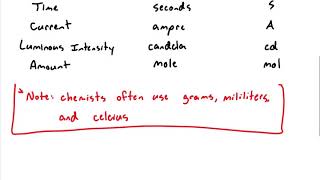 Time seconds s
Current ampre A
Luminous Intensity candela cd
Amount mole mol
*Note: chemists often use grams, mililiters,
and celcius